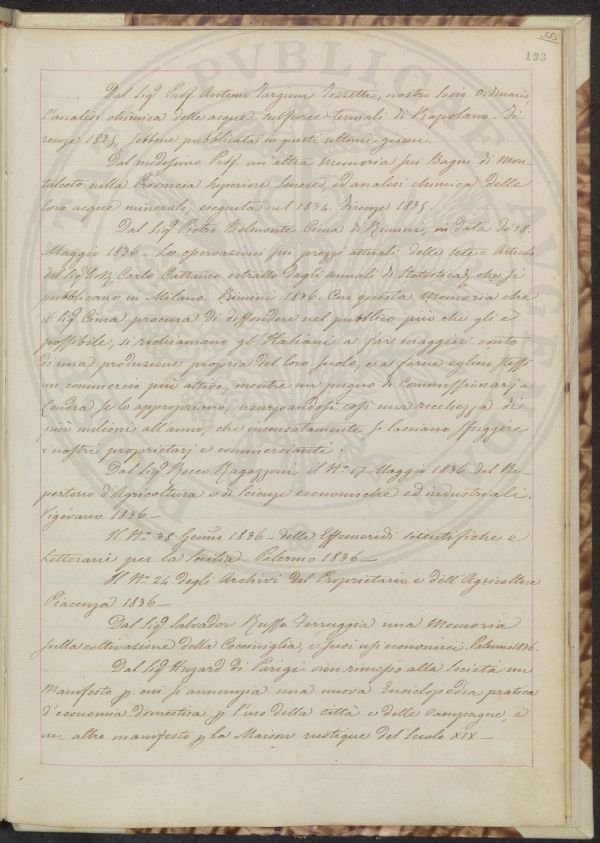 355
193
Dal Sig.r Prof. Antonio Targioni Tozzetti, nostro Socio Ordinario,
l'analisi chimica delle acque sulfuree termali di Rapolano - Fi
renze 1835, sebbene pubblicata in questi ultimi giorni.
Dal medesimo Prof. un'altra Memoria sui Bagni di Mon
talceto nella Provincia Superiore Senese, ed analisi chimica delle
loro acque minerali, eseguita nel 1834. Firenze 1835.
Dal Sig.r Pietro Belmonte Cima di Rimini, in data di 18.
Maggio 1836 - Le osservazioni sui prezzi attuali delle Sete = Articolo
del Sig. Carlo Cattaneo estratto dagli annali di Statistica, che si
pubblicano in Milano. Rimini 1836. Con questa Memoria che
il Sig.r Cima procura di diffondere nel pubblico più che gli è
possibile, si richiamano gl'Italiani a fare maggior conto
di una produzione propria del loro suolo, e a farne eglino stessi
un commercio più attivo, mentre un pugno di Commissionarj a
Londra se lo appropriano, usurpandosi così una ricchezza di
più milioni all'anno, che insensatamente si lasciano sfuggire
i nostri proprietarj e commercianti.
Dal Sig.r Rocco Ragazzoni il N.o 17 Maggio 1836 del Re
pertorio d'Agricoltura e di Scienze economiche ed industriali.
Vigevano 1836 -
Il N.o 38 Genn.o 1836 - delle Effemeridi scientifiche e
Letterarie per la Sicilia. Palermo 1836 -
Il N.o 24 degli Archivi del Proprietario e dell'Agricoltore
Piacenza 1836 -
Dal Sig.r Salvador Ruffo Ferruggia una Memoria
sulla coltivazione della Cocciniglia, e suoi usi economici. Palermo 1836.
Dal Sig.r Huzard di Parigi vien rimesso alla Società un
Manifesto p cui si annunzia una nuova Enciclopedia pratica
d'economia domestica p l'uso della città e delle campagne, e
un altro manifesto p la Maison rustique del Secolo XIX -